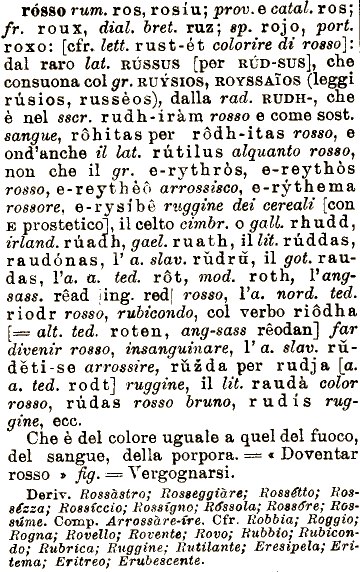 rósso rum. ros, rosíu; prov. e catal. ros;
fr. roux, dial. bret. ruz; sp. rojo, port.
roxo: [cfr. lett. rust-ét colorire di rosso]:
dal raro lat. RÚSSUS [per RÚD-SUS], che
consuona col gr. RUÝSIOS, ROYSSAÎOS (leggi
rúsios, russèos), dalla rad. RUDH-, che
è nel sscr. rudh-iràm rosso e come sost.
sangue, rôhitas per rôdh-itas rosso, e
ond'anche il lat. rútilus alquanto rosso,
non che il gr. e-rythròs, e-reythòs
rosso, e-reythèô arrossisco, e-rýthema
rossore, e-rysíbê ruggine dei cereali [con
E prostetico], il celto cimbr. o gall. rhudd,
irland. rúadh, gael. ruath, il lit. rúddas,
raudónas, l'a. slav. rŭdrŭ, il got. rau-
das, l'a. a. ted. rôt, mod. roth, l'ang-
sass. rêad [ing. red] rosso, l'a. nord. ted.
riodr rosso, rubicondo, col verbo riôdha
[= alt. ted. roten, ang-sass rêodan] far
divenir rosso, insanguinare, l'a. slav. rŭ-
dĕti-se arrossire, rŭžda per rudja [a.
a. ted. rodt] ruggine, il lit. raudà color
rosso, rúdas rosso bruno, rudís rug-
gine, ecc.
Che è del colore uguale a quel del fuoco,
del sangue, della porpora. = « Doventar
rosso » fig. = Vergognarsi.
Deriv. Rossàstro; Rosseggiàre; Rossétto; Ros-
sézza; Rossíccio; Rossígno; Róssola; Rossóre; Ros-
súme. Comp. Arrossàre-íre. Cfr. Robbia; Roggio;
Rogna; Rovello; Rovente; Rovo; Rubbio; Rubicon-
do; Rubrica; Ruggine; Rutilante; Eresipela; Eri-
tema; Eritreo; Erubescente.